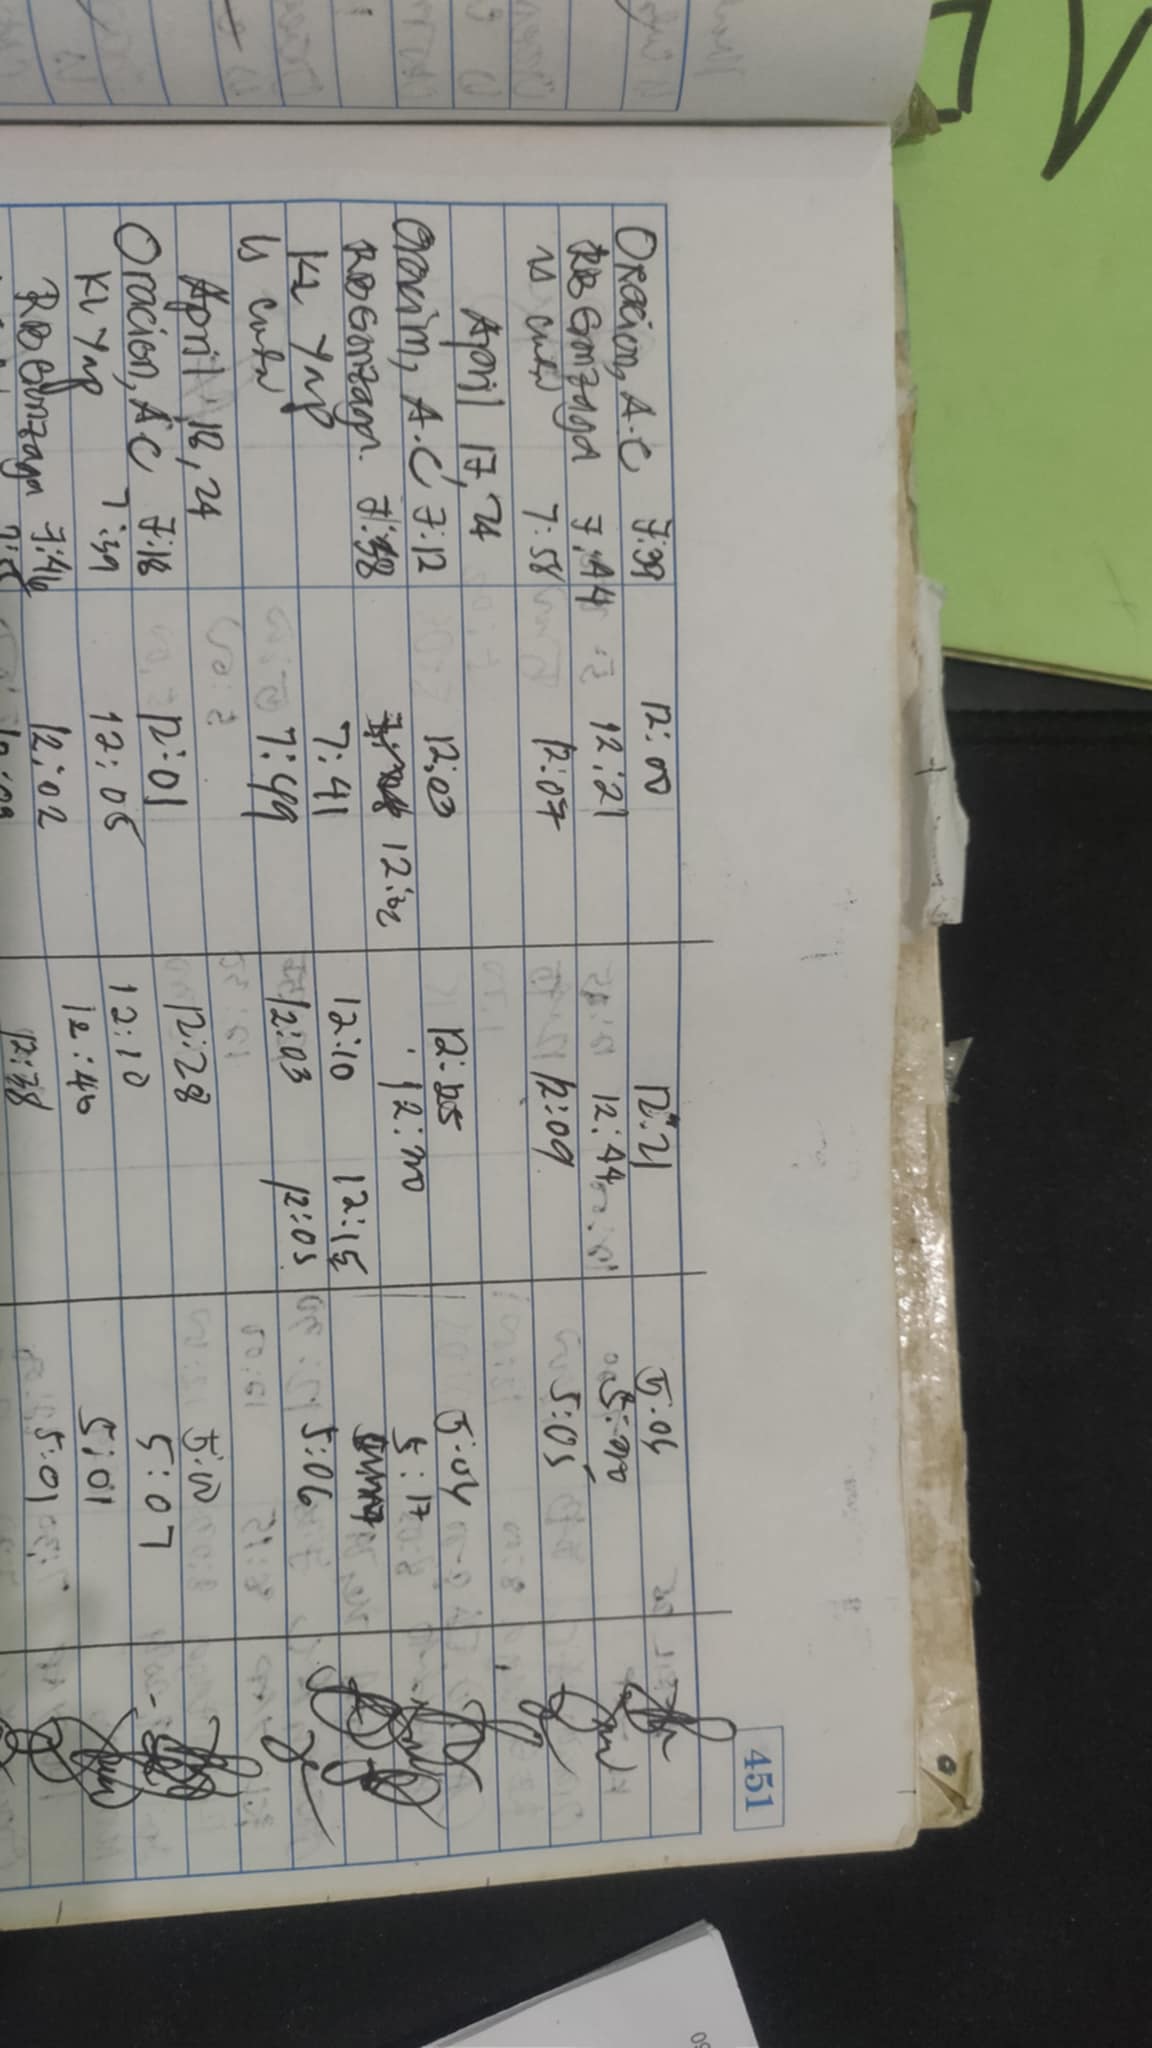 451
Oracion, A.C 7:39 12:00 12:21 5:04
RB Gonzaga 7:44 12:21 12:44 5:00
7:58 12:07 12:09 5:05
April 17, 24
A.C 7:12 12:03 12:25 5:04
RB Gonzaga 7:38 12:02 12:20 5:17
KL Ynp 7:41 12:10 12:15
7:49 12:03 12:05 5:06
April 18, 24
Oracion, AC 7:18 12:01 12:28 5:00
KL Ynp 7:39 12:05 12:10 5:07
RB Gonzaga 7:46 12:02 12:40 5:01
12:38 5:01